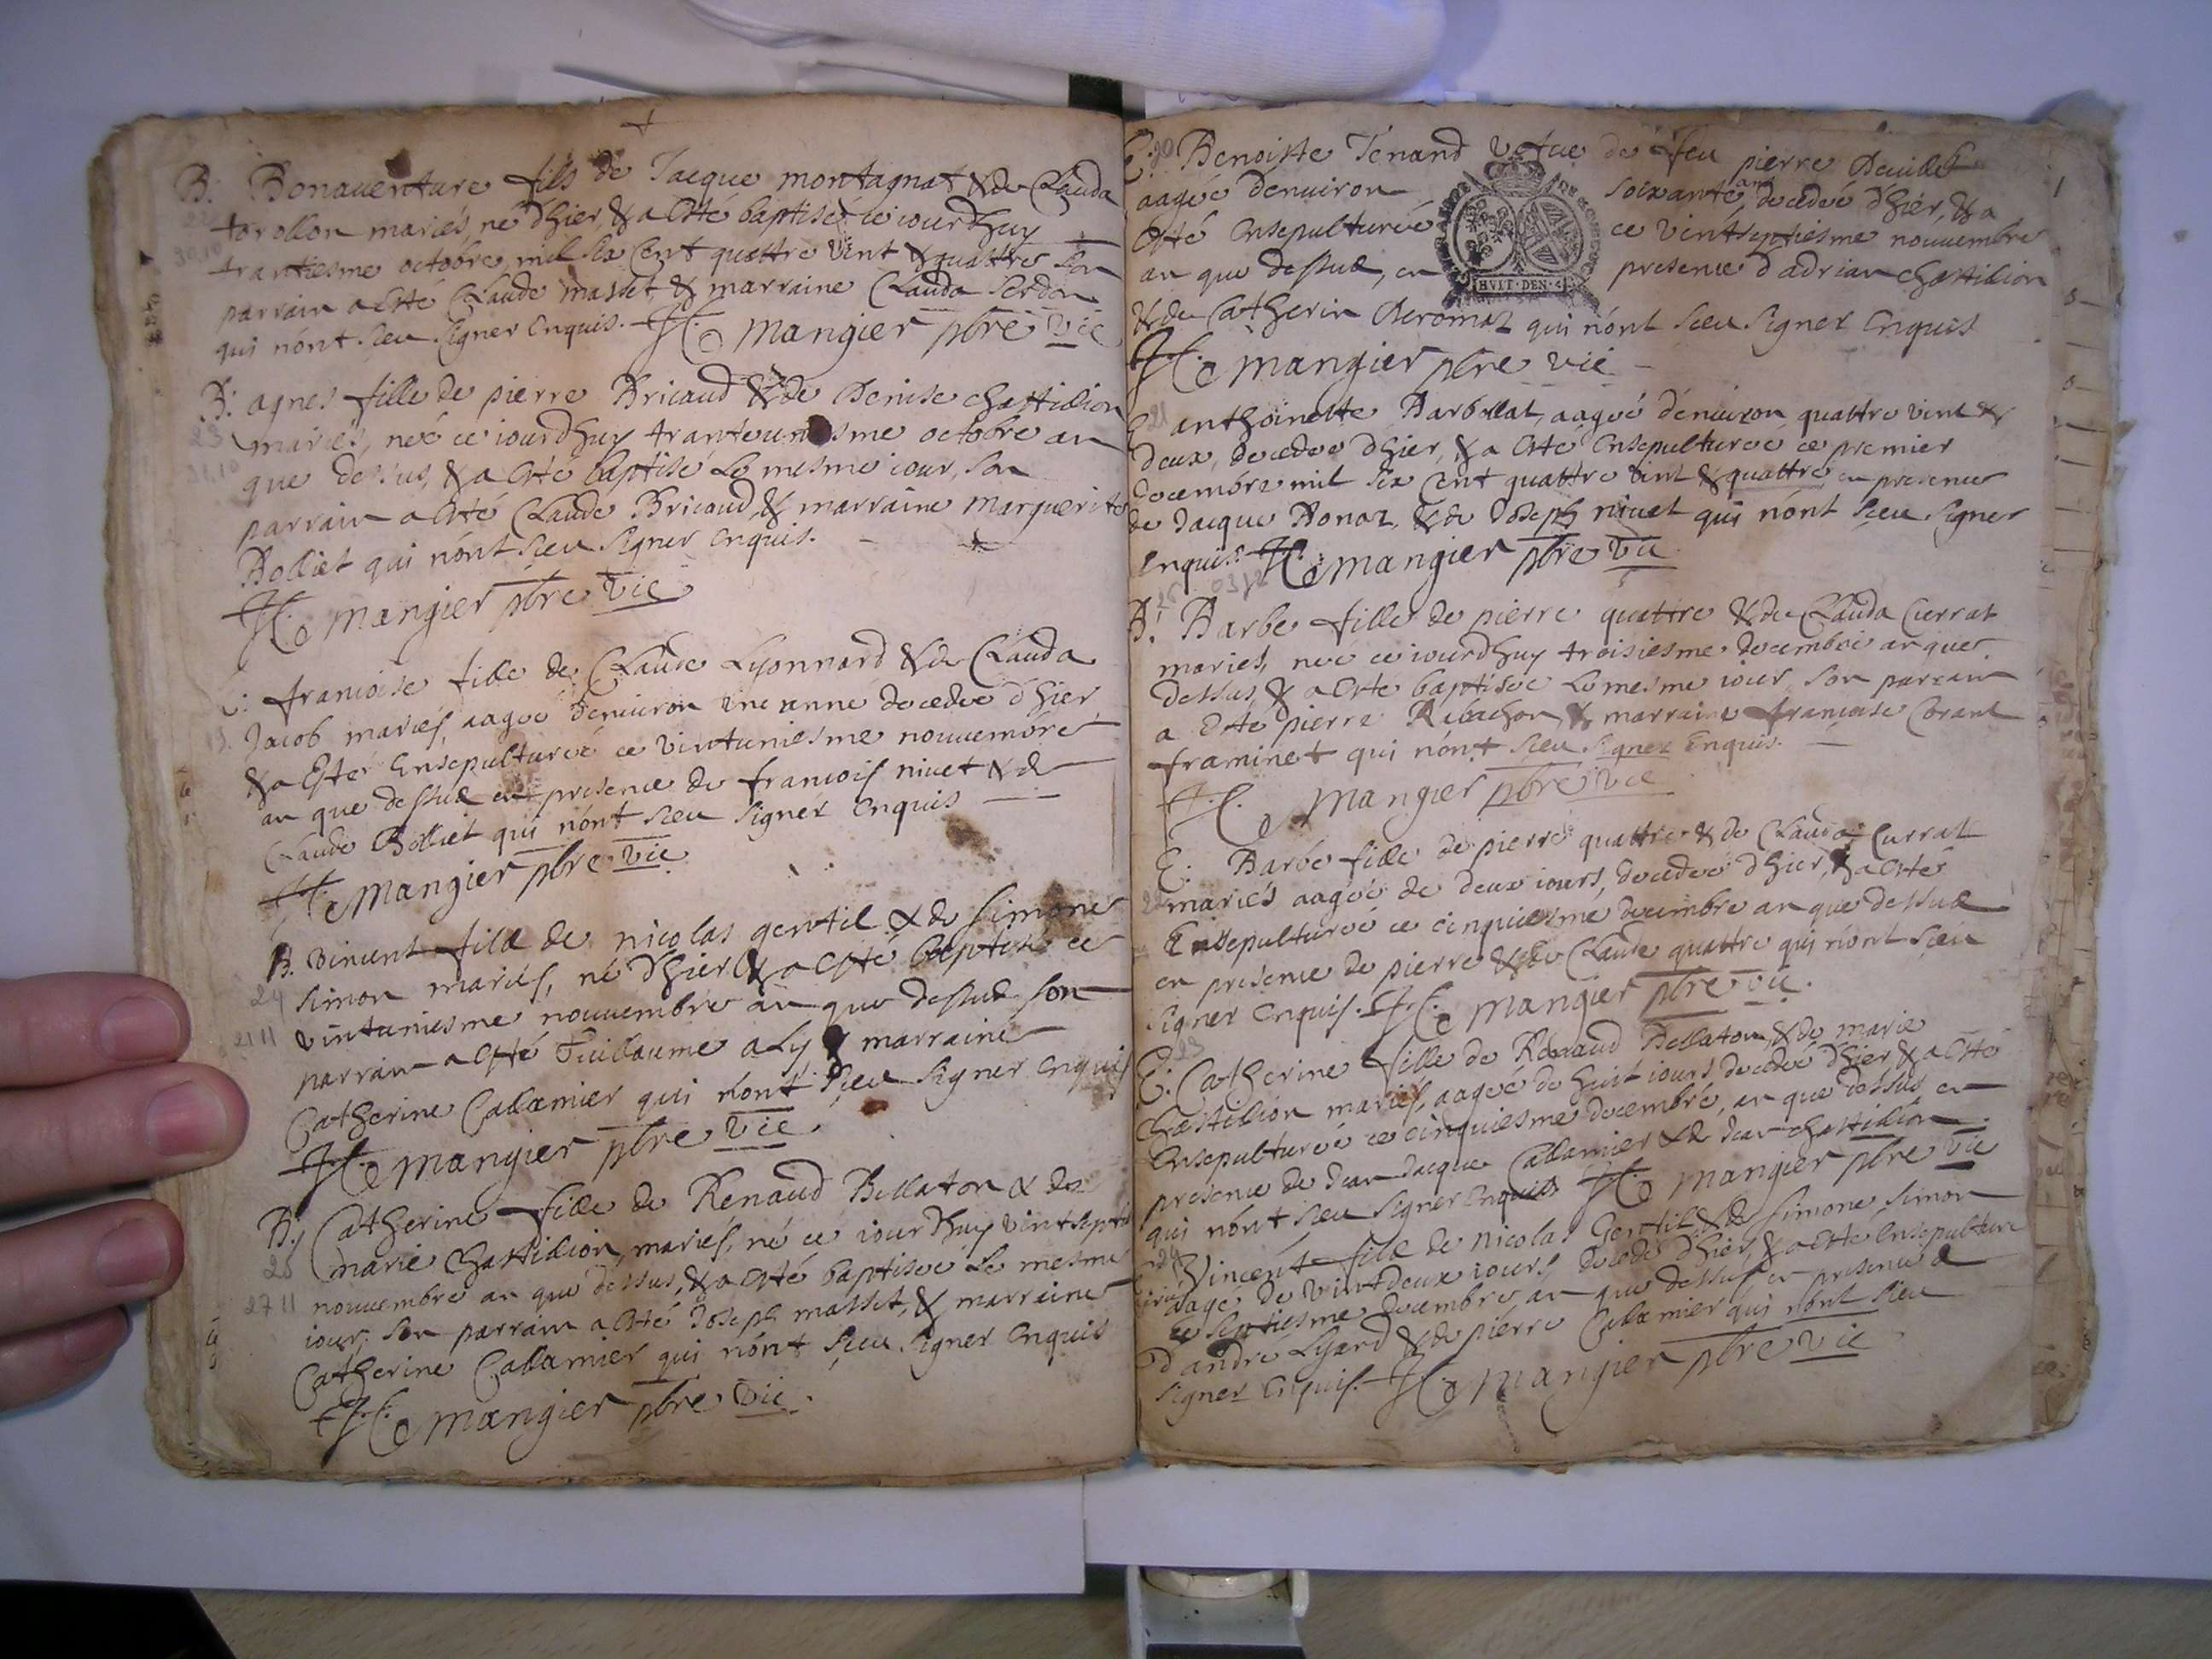 B. Bonauenture fils de Jacque montagnat & de Clauda
torollon mariés, né d'hier, & a esté baptisé ce iourdhuy
trantiesme octobre, mil six cent quattre vint & quattre son
parrain a esté Claude masset & marraine Clauda Serdon
qui n'ont sceu signer enquis. Mangier pbre vic
B. agnes fille de pierre Bricaud & de Denise chastillion
mariés, neé ce iourdhuy tranteuniesme octobre an
que dessus, & a esté baptisé le mesme iour, son
parrain a esté Claude Bricaud, & marraine Marguerite
Bolliet qui n'ont sceu signer enquis.
Mangier pbre vic
E. francoise fille de Claude Lyonnard & de Clauda
Jacob mariés, aageé d'enuiron une anné decedeé d'hier,
& a esté Ensepultureé ce vintuniesme nouuembre
an que dessus en presence de francois niuet & de
Claude Bolliet qui n'ont sceu signer enquis
Mangier pbre vic
B. vincent fils de nicolas gentil & de simone
24
simon mariés, né d'hier & a esté baptisé ce
21 11
vintuniesme nouuembre an que dessus son
parrain a esté Guillaume aly & marraine
Catherine Callamier qui n'ont sceu signer enquis
Mangier pbre vic
B. Catherine fille de Renaud Bellaton & de
25
marie Chastillion, mariés, né ce iourdhuy vintseptie
27 11
nouuembre an que dessus, & a esté baptiseé le mesme
iour, son parrain a esté Joseph masset, & marraine
Catherine Callamier qui n'ont sceu signer enquis
Mangier pbre vic
E. 20 Benoiste Tenand vefue de feu pierre
aageé d'enuiron soixante ans decedeé d'hier, & a
esté ensepultureé ce vintseptiesme nouuembre
an que dessus, en presence d'adrian chastillion
HVIT DEN 4
& de Catherin qui n'ont sceu signer enquis
Mangier pbre vic
E. 21 anthoinette Barbollat, aageé d'enuiron quattre vint &
deux, decedeé d'hier, & a esté ensepultureé ce premier
decembre mil six cent quattre vint & quattre en presence
de Jacque Bonaz, & de Joseph niuet qui n'ont sceu signer
enquis. Mangier pbre vic
B. Barbe fille de pierre quattre & de Clauda Currat
mariés, neé ce iourdhuy troisiesme decembre an que
dessus, & a esté baptiseé le mesme iour son parrain
a esté pierre Rebachon, & marraine francoise Corant
framinet qui n'ont sceu signer Enquis.
Mangier pbre vic
E. Barbe fille de pierre quattre & de Clauda Currat
mariés aageé de deux iours, decedeé d'hier, & a esté
Ensepultureé ce cinquiesme decembre an que dessus
en presence de pierre & de Claude quattre qui n'ont sceu
signer enquis. Mangier pbre vic.
23
E. Catherine fille de Renaud Bellaton, & de marie
Chastillion mariés, aageé de huit iours decedeé d'hier, & a esté
ensepultureé ce cinquiesme decembre, an que dessus en
presence de Jean Jacque Callamier & de Jean chastillion
qui n'ont sceu signer enquis Mangier pbre vic
24 Vincent fils de nicolas Gentil & de simone simon
aagé de vintdeux iours, decedé d'hier, & a esté ensepulturé
ce septiesme decembre, an que dessus en presence
d'andré Lyard & de pierre Callamier qui n'ont sceu
signer enquis. Mangier pbre vic